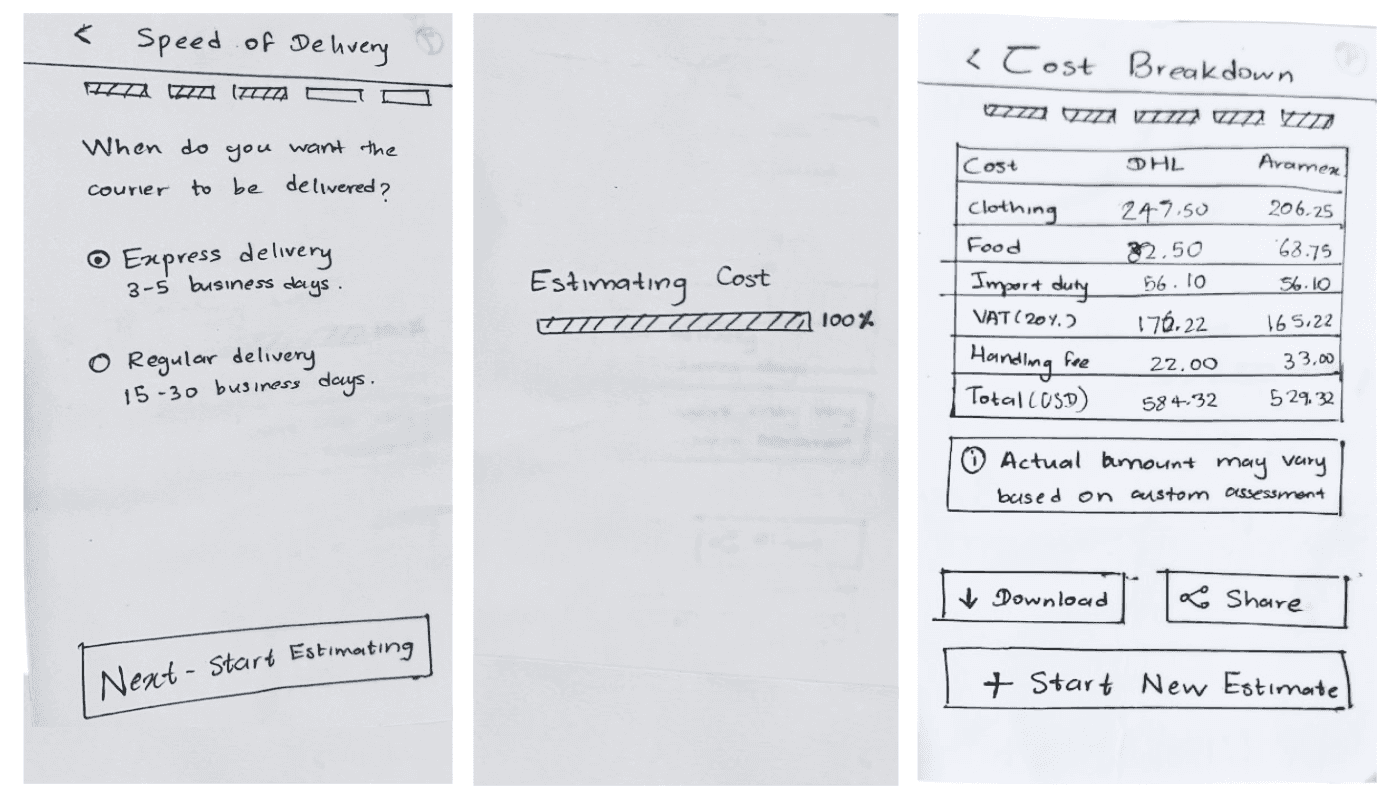 < Speed of Delivery
When do you want the
courier to be delivered?
Express delivery
3-5 business days.
Regular delivery
15-30 business days.
Next - Start Estimating
Estimating Cost
100%
< Cost Breakdown
Cost DHL Aramex
Clothing 247.50 206.25
Food 82.50 68.75
Import duty 56.10 56.10
VAT (20%) 176.22 165.22
Handling fee 22.00 33.00
Total (USD) 584.32 529.32
i Actual amount may vary
based on custom assessment
Download
Share
+ Start New Estimate